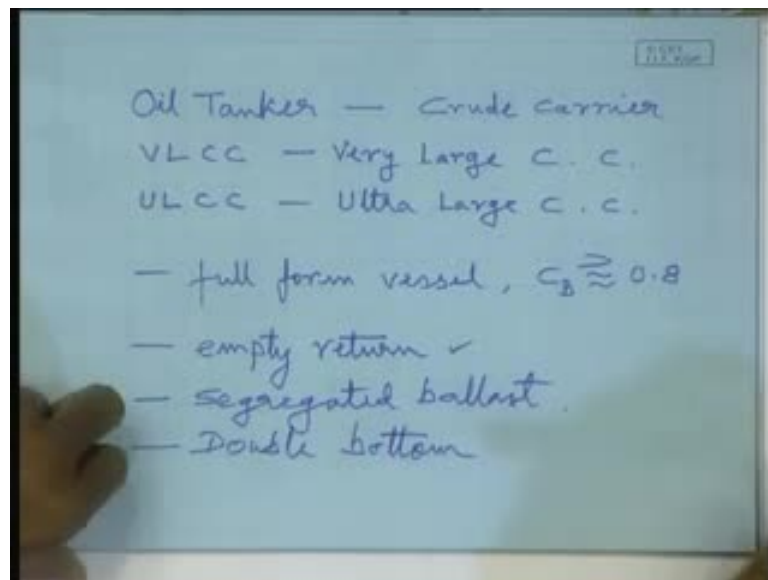 Oil Tanker — Crude carrier
VLCC — Very Large C. C.
ULCC — Ultra Large C. C.
— full form vessel, C_B ≳≈ 0.8
— empty return ✓
— segregated ballast.
— Double bottom